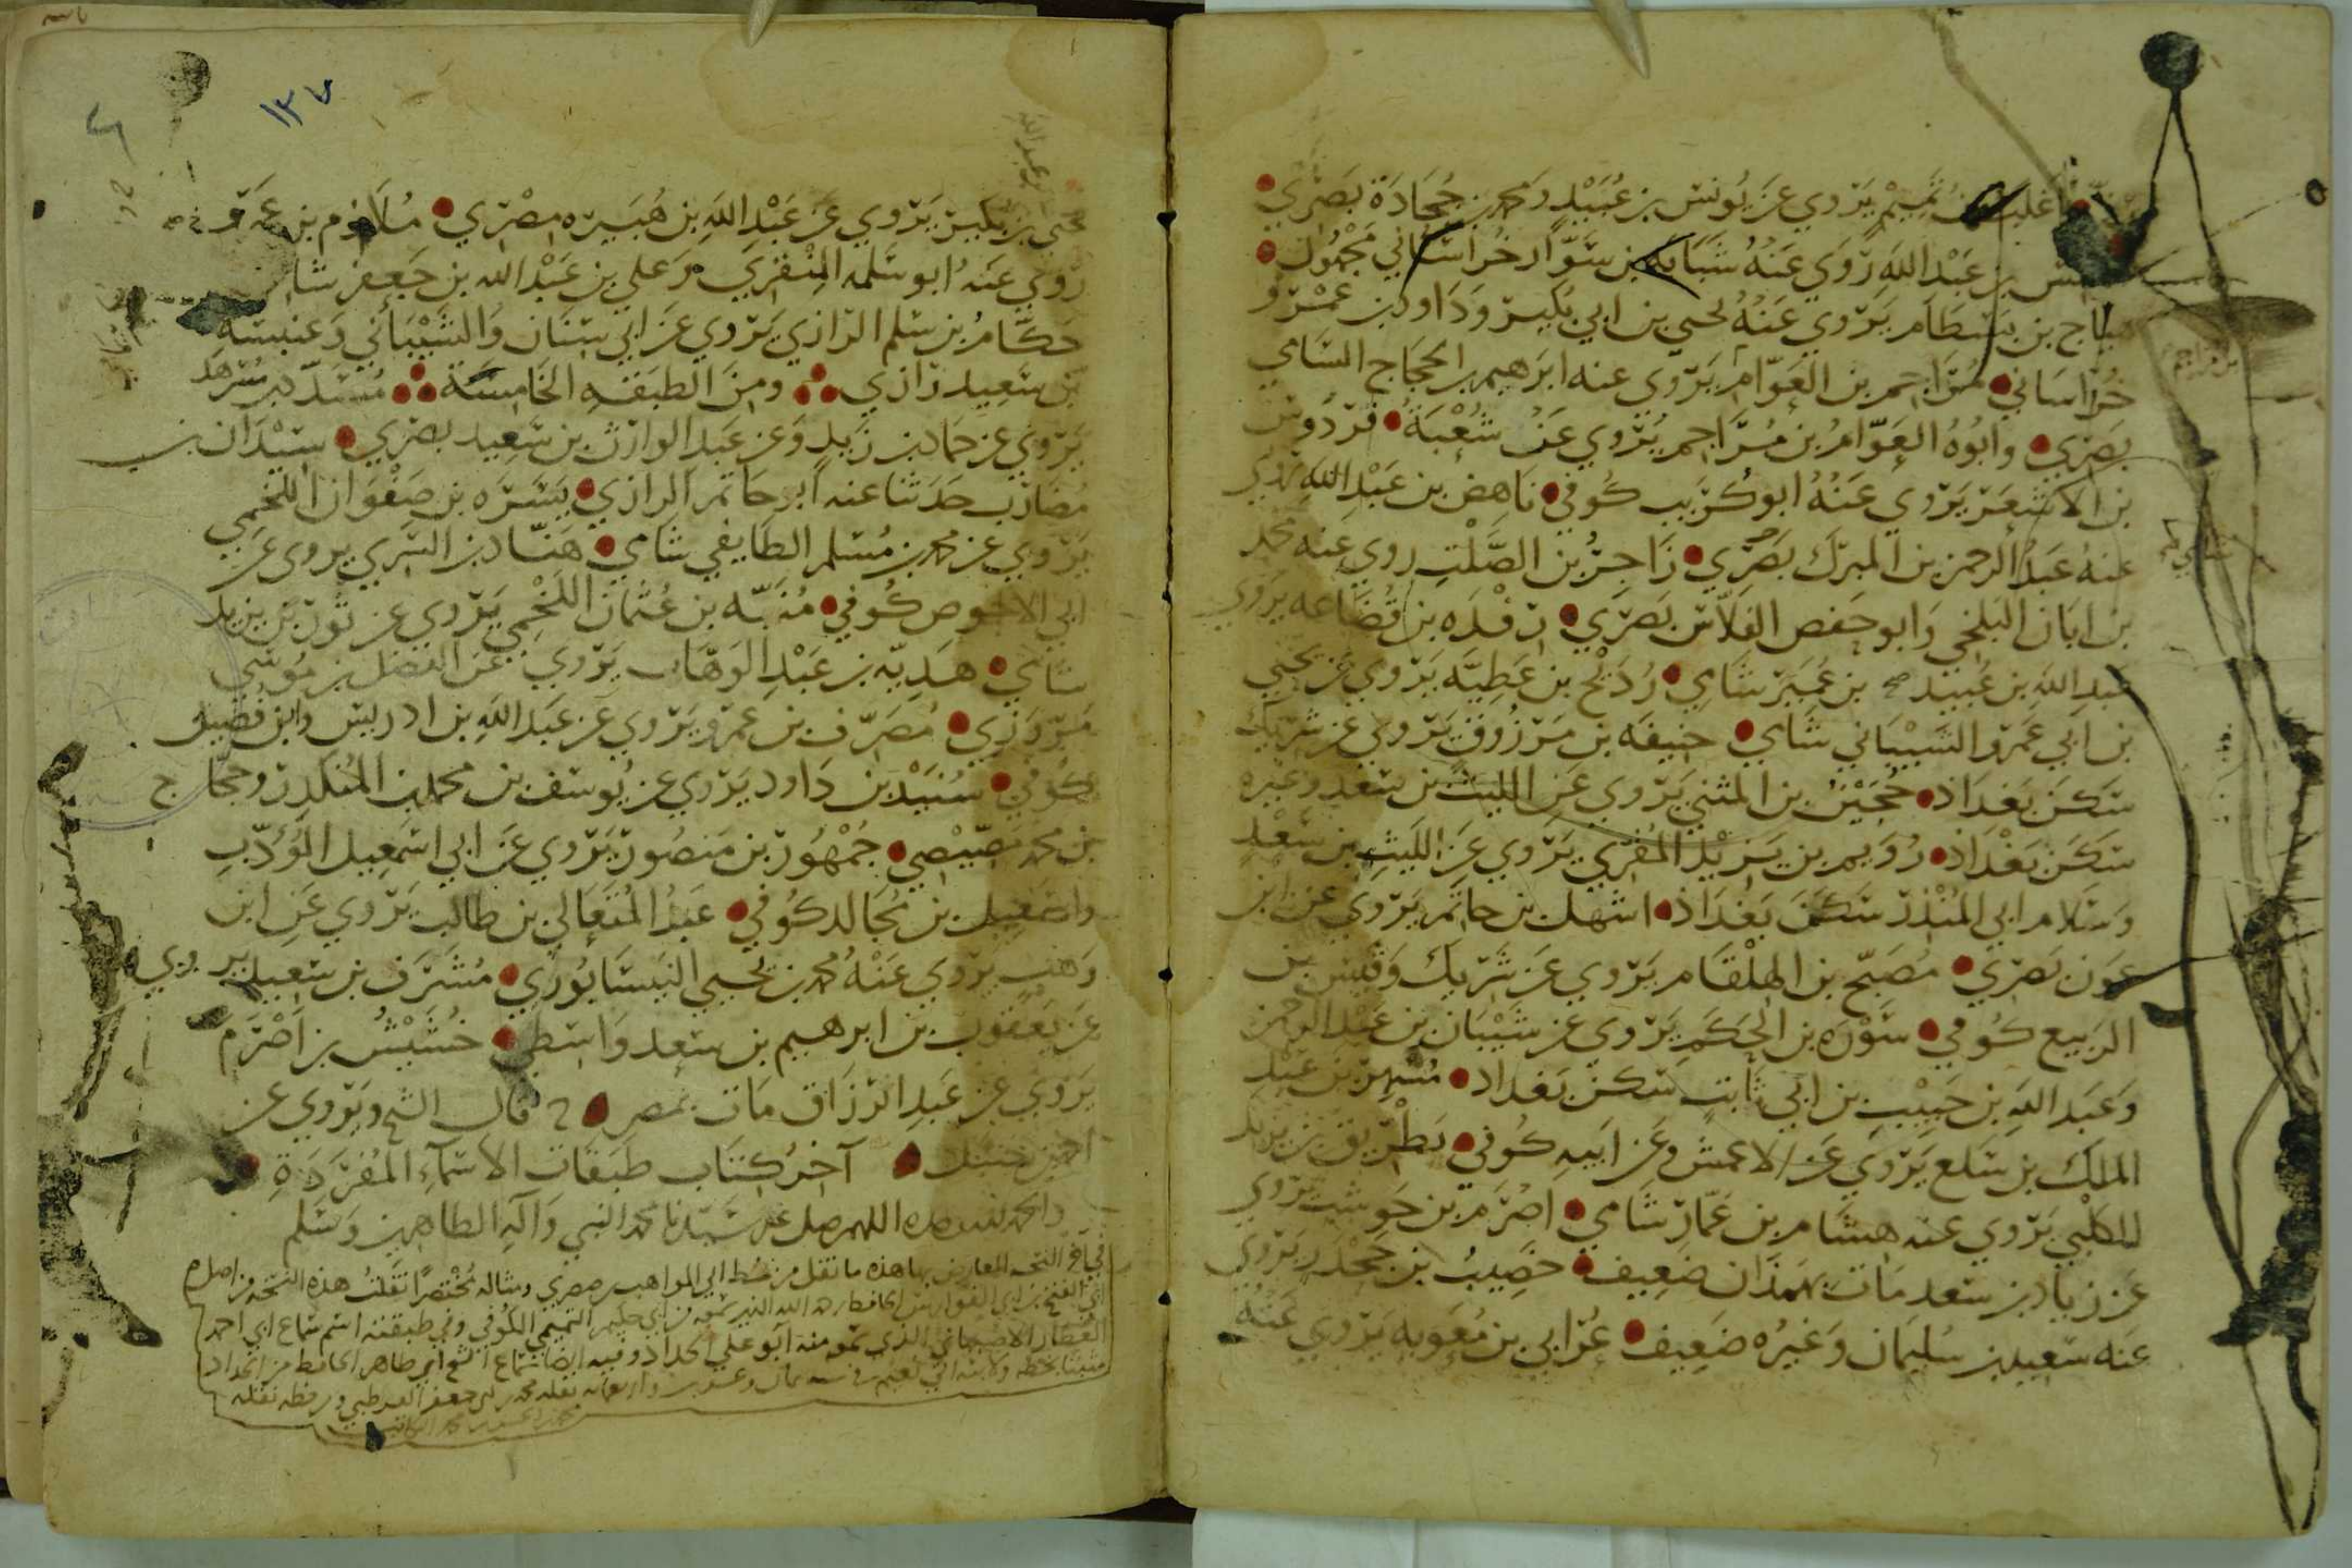 أغلب بن تميم يروي عن يونس بن عبيد ومحمد بن جحادة بصري
بن عبد الله روي عنه شبابه بن سوار خراساني مجهول
بن بسطام يروي عنه يحيى بن ابي بكير وداود بن عمرو
خراساني مزاحم بن العوام يروي عنه ابرهيم بن الحجاج السامي
بصري وابوه العوام بن مزاجم يروي عن شعبة فردوس
بن الاشعر يروي عنه ابو كريب كوفي ناهض بن عبد الله روي
عنه عبد الرحمن بن المبرك بصري زاجر بن الصلت روي عنه محمد
بن ابان البلخي وابو حفص الفلاس بصري رفده بن قضاعه يروي
عبد الله بن عبيد صح بن عمير شامي رديح بن عطيه يروي عن يحيى
بن ابي عمرو الشيباني شامي خنيفه بن مرزوق يروي عن شريك
سكن بغداد حجين بن المثنى يروي عن الليث بن سعد وغيره
سكن بغداد رويم بن يزيد المقري يروي عن الليث بن سعد
وسلام ابي المنذر سكن بغداد اشهل بن حاتم يروي عن ابن
عون بصري مصبح بن الهلقام يروي عن شريك وقيس بن
الربيع كوفي سوره بن الحكم يروي عن شيبان بن عبد الرحمن
وعبد الله بن حبيب بن ابي ثابت سكن بغداد مسهر بن عبد
الملك بن سلع يروي عن الاعمش وعن ابيه كوفي بطريق بن يزيد
الكلبي يروي عنه هشام بن عمار شامي اصرم بن حوشب يروي
عن زياد بن سعد مات بهمذان ضعيف خصيب بن جحدر يروي
عنه سعيد بن سليمان وغيره ضعيف عرابي بن معويه يروي عنه
بن مزاحم
١٣٧
يحيى بن بكير يروي عن عبد الله بن هبيره مصري ملازم بن عمرو
روي عنه ابو سلمه المنقري وعلي بن عبد الله بن جعفر
حكام بن سلم الرازي يروي عن ابي سنان والشيباني وعنبسه
بن سعيد رازي ومن الطبقه الخامسة مسدد بن مسرهد
يروي عن حماد بن زيد وعن عبد الوارث بن سعيد بصري سيدان بن
مضارب حدثنا عنه ابو حاتم الرازي يسره بن صفوان اللخمي
يروي عن محمد بن مسلم الطايفي شامي هناد بن السري يروي عن
ابي الاحوص كوفي منبه بن عثمان اللخمي يروي عن ثور بن يزيد
شامي هديه بن عبد الوهاب يروي عن الفضل بن موسى
مروزي مصرف بن عمرو يروي عن عبد الله بن ادريس وابن فضيل
كوفي سنيد بن داود يروي عن يوسف بن محمد بن المنكدر وحجاج
بن محمد مصيصي جمهور بن منصور يروي عن ابي اسمعيل المؤدب
واسمعيل بن مجالد كوفي عبد المتعالي بن طالب يروي عن ابن
وهب يروي عنه محمد بن يحيى النيسابوري مشرف بن سعيد يروي
عن يعقوب بن ابرهيم بن سعد واسطي خشيش بن اصرم
يروي عن عبد الرزاق مات بمصر قال الشيخ ويروي عن
احمد بن حنبل آخر كتاب طبقات الأسماء المفردة
والحمد لله وحده اللهم صل على سيدنا محمد النبي وآله الطاهرين وسلم
في آخر النسخه المعارض بها هذه ما نقل من خط ابي المواهب بن صصري ومثاله مختصرا نقلت هذه النسخه من اصل
العطار الاصبهاني الذي منه ابو علي الحداد وفيه ايضا سماع ابي طاهر الحافظ من الحداد